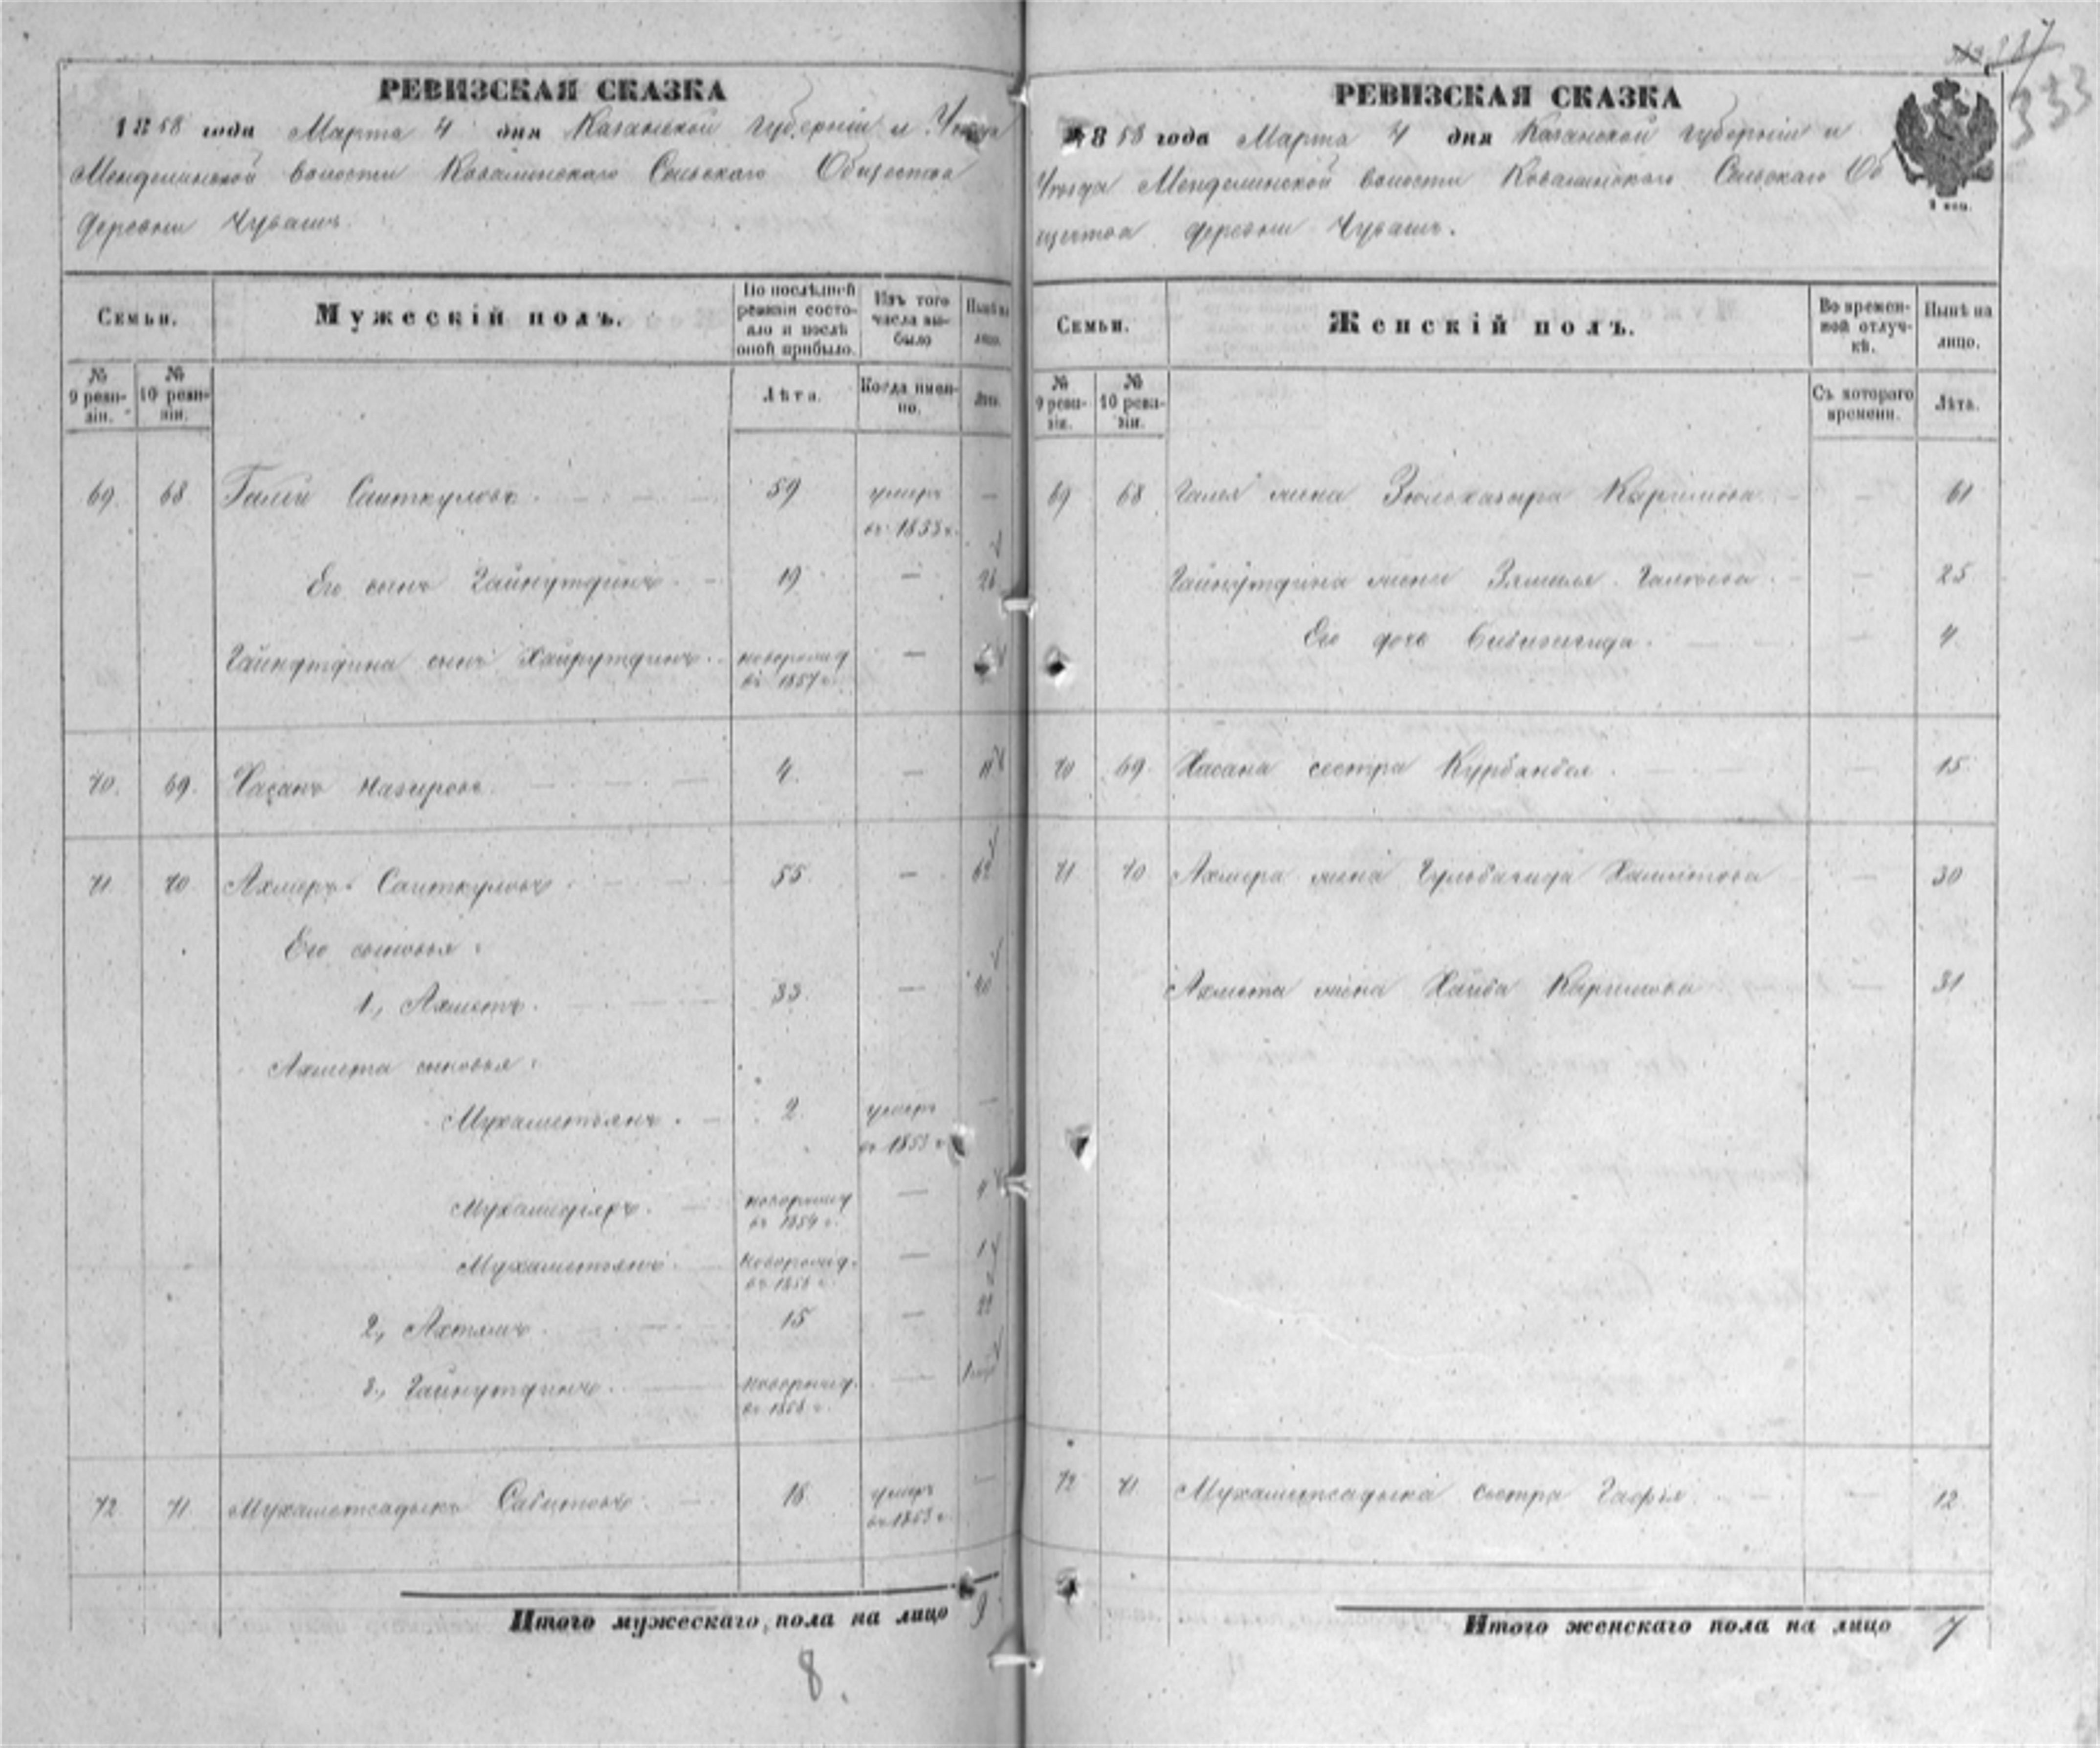 РЕВИЗСКАЯ СКАЗКА
1858 года Марта 4 дня Казанской Губерніи и Уезда
Менделинской волости Ковалинскаго Сельскаго Общества
деревни Чуваши
Семьи.
Мужескій полъ.
По послѣдней ревизіи состояло и послѣ оной прибыло.
Изъ того числа выбыло
Нынѣ на лицо.
№ 9 ревизіи.
№ 10 ревизіи.
Лѣта.
Когда именно.
Лѣта.
69. 68. Галей Саиткуловъ 59 умеръ —
въ 1853 г.
Его сынъ Гайнутдинъ 19 — 26
Гайнутдина сынъ Хайрутдинъ новорожд —
въ 1857 г.
70. 69. Хасанъ Назировъ 4. — 11
71 70 Ахмеръ Саиткуловъ 55 — 62
Его сыновья:
1, Ахметъ 33. — 40
Ахмета сыновья:
Мухаметзянъ 2. умеръ —
въ 1853 г.
Мухамедіяръ новорожд — 4
въ 1854 г.
Мухаметзянъ новорожд. — 1
въ 1856 г.
2, Ахтямъ 15 — 22
3, Гайнутдинъ новорожд. —
въ 1858 г.
72 71 Мухаметсадыкъ Сабитовъ 18 умеръ —
въ 1853 г.
Итого мужескаго пола на лицо 9
8.
333
РЕВИЗСКАЯ СКАЗКА
1858 года Марта 4 дня Казанской Губерніи и
Уезда Менделинской волости Ковалинскаго Сельскаго Об
щества деревни Чуваши.
Семьи.
Женскій полъ.
Во временной отлучкѣ.
Нынѣ на лицо.
№ 9 ревизіи.
№ 10 ревизіи.
Съ котораго времени.
Лѣта.
69 68 Галея жена Зюльхазыра Каримова — 61
Гайнутдина жена Зямиля Галеева — 25
Его дочь — 4
70 69. Хасана сестра Курбанбея — 15
71 70 Ахмера жена Гульбагида Хамитова — 30
Ахмета жена Хаиба Каримова — 31
72 71 Мухаметсадыка сестра Гафія — 12
Итого женскаго пола на лицо 7